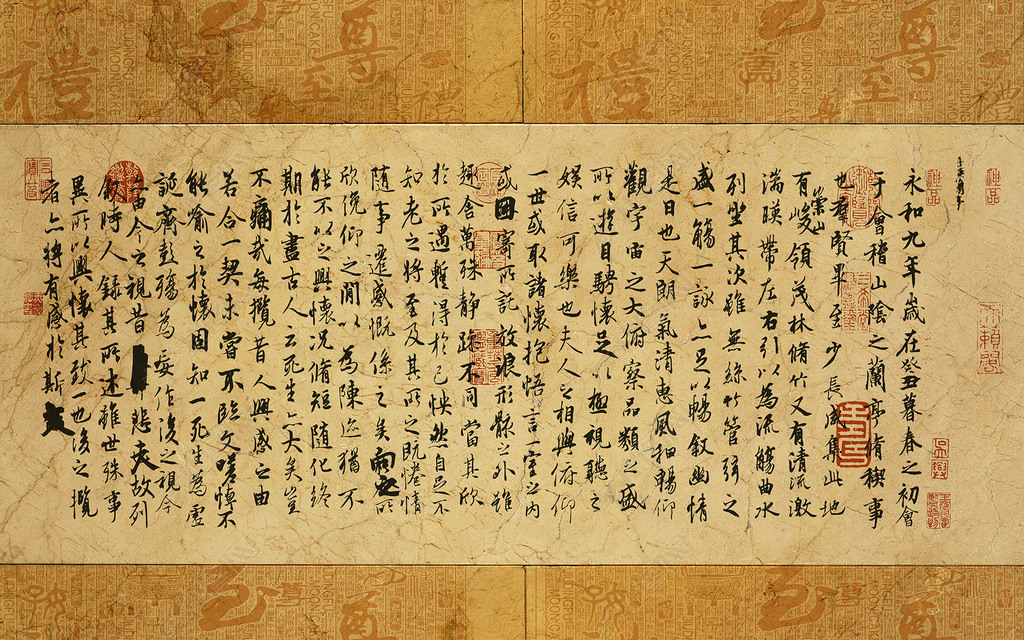 永和九年歲在癸丑暮春之初會
于會稽山陰之蘭亭脩稧事
也羣賢畢至少長咸集此地
有崇山峻領茂林脩竹又有清流激
湍暎帶左右引以為流觴曲水
列坐其次雖無絲竹管弦之
盛一觴一詠亦足以暢敘幽情
是日也天朗氣清惠風和暢仰
觀宇宙之大俯察品類之盛
所以遊目騁懷足以極視聽之
娛信可樂也夫人之相與俯仰
一世或取諸懷抱悟言一室之內
或因寄所託放浪形骸之外雖
趣舍萬殊靜躁不同當其欣
於所遇蹔得於己怏然自足不
知老之將至及其所之既惓情
隨事遷感慨係之矣向之所
欣俛仰之閒以為陳迹猶不
能不以之興懷況脩短隨化終
期於盡古人云死生亦大矣豈
不痛哉每攬昔人興感之由
若合一契未嘗不臨文嗟悼不
能喻之於懷固知一死生為虛
誕齊彭殤為妄作後之視今
亦由今之視昔悲夫故列
敘時人錄其所述雖世殊事
異所以興懷其致一也後之攬
者亦將有感於斯文
禮
尊
至
MOONCAKE